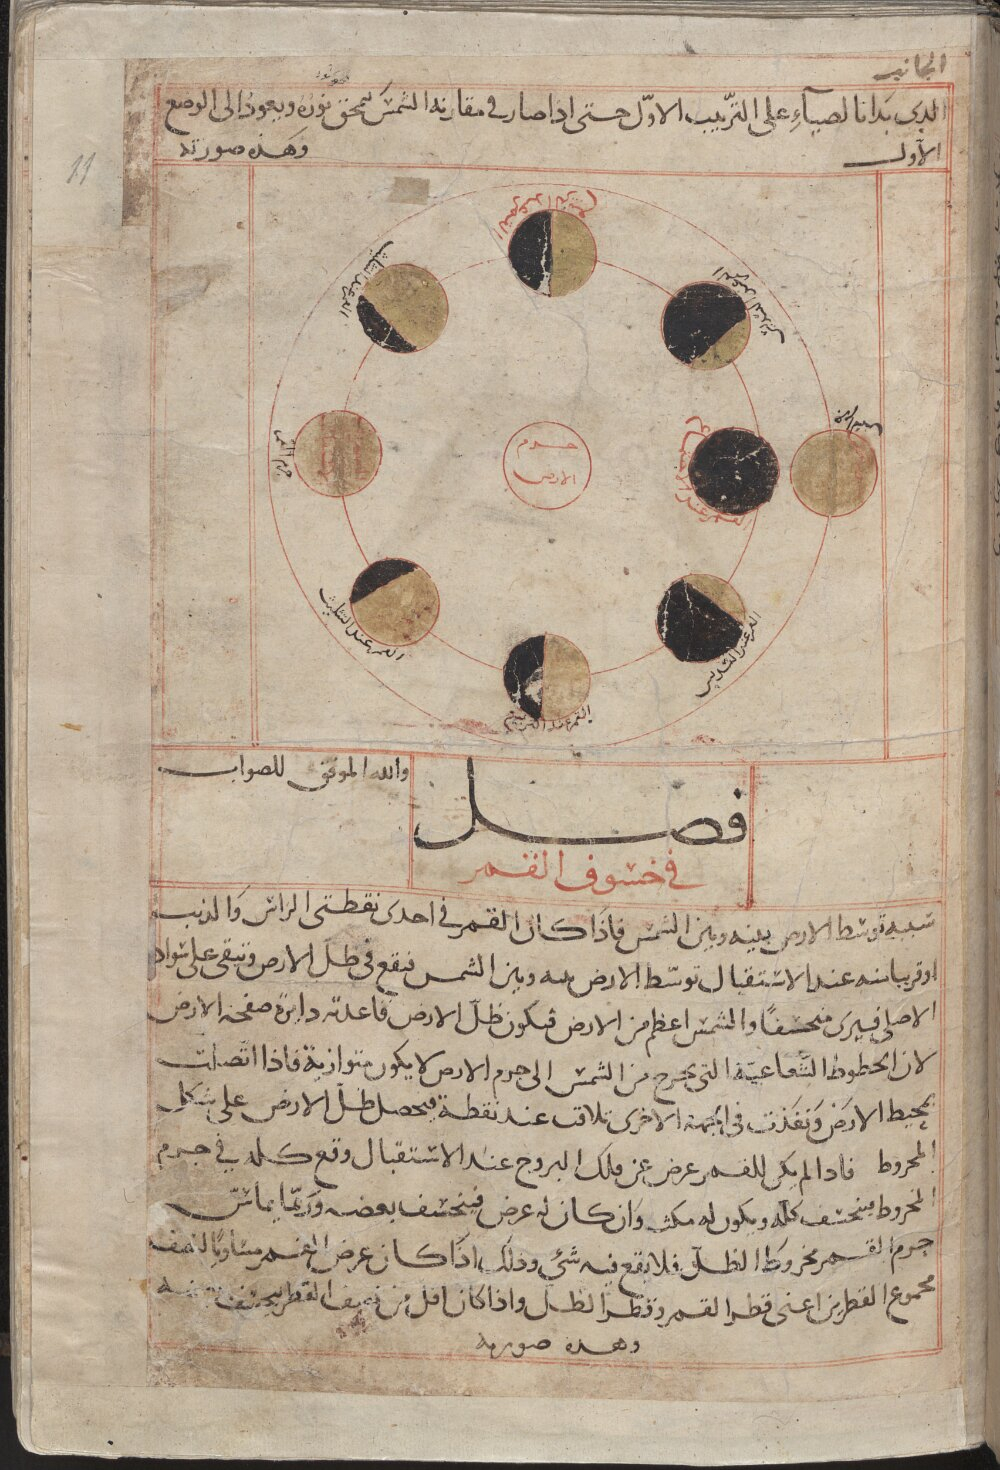 الجانب
الذى بدانا لضياء على التربيب الاول حتى اذا صار فى مقارنة الشمس يمحق نوره ويعود الى الوضع
الاول وهذه صورته
11
القمر عند التربيع
القمر عند التثليث
القمر عند التسديس
جرم القمر
جرم الارض
القمر عند الاجتماع
القمر عند التثليث
القمر عند التربيع
القمر عند التسديس
والله الموفق للصواب
فصل
فى خسوف القمر
سببه توسط الارض بينه وبين الشمس فاذا كان القمر فى احدى نقطتى الراس والذنب
او قريبا منه عند الاستقبال توسط الارض بينه وبين الشمس فيقع فى ظل الارض وتبقى على سواده
الاصلى فيرى منخسفا والشمس اعظم من الارض فيكون ظل الارض قاعدته دايرة صفحة الارض
لان الخطوط الشعاعية التى يخرج من الشمس الى جرم الارض لا يكون متوازية فاذا اتصلت
بمحيط الارض ونفذت فى الجهة الاخرى تلاقت عند نقطة فيحصل ظل الارض على شكل
المخروط فاذا لم يكن للقمر عرض عن فلك البروج عند الاستقبال وقع كله فى جرم
المخروط فينخسف كله ويكون له مكث وان كان له عرض فينخسف بعضه وربما يماس
جرم القمر مخروط الظل فلا يقع فيه شئ وذلك اذا كان عرض القمر مساويا لنصف
مجموع القطرين اعنى قطر القمر وقطر الظل واذا كان اقل من نصف القطرين
وهذه صورته